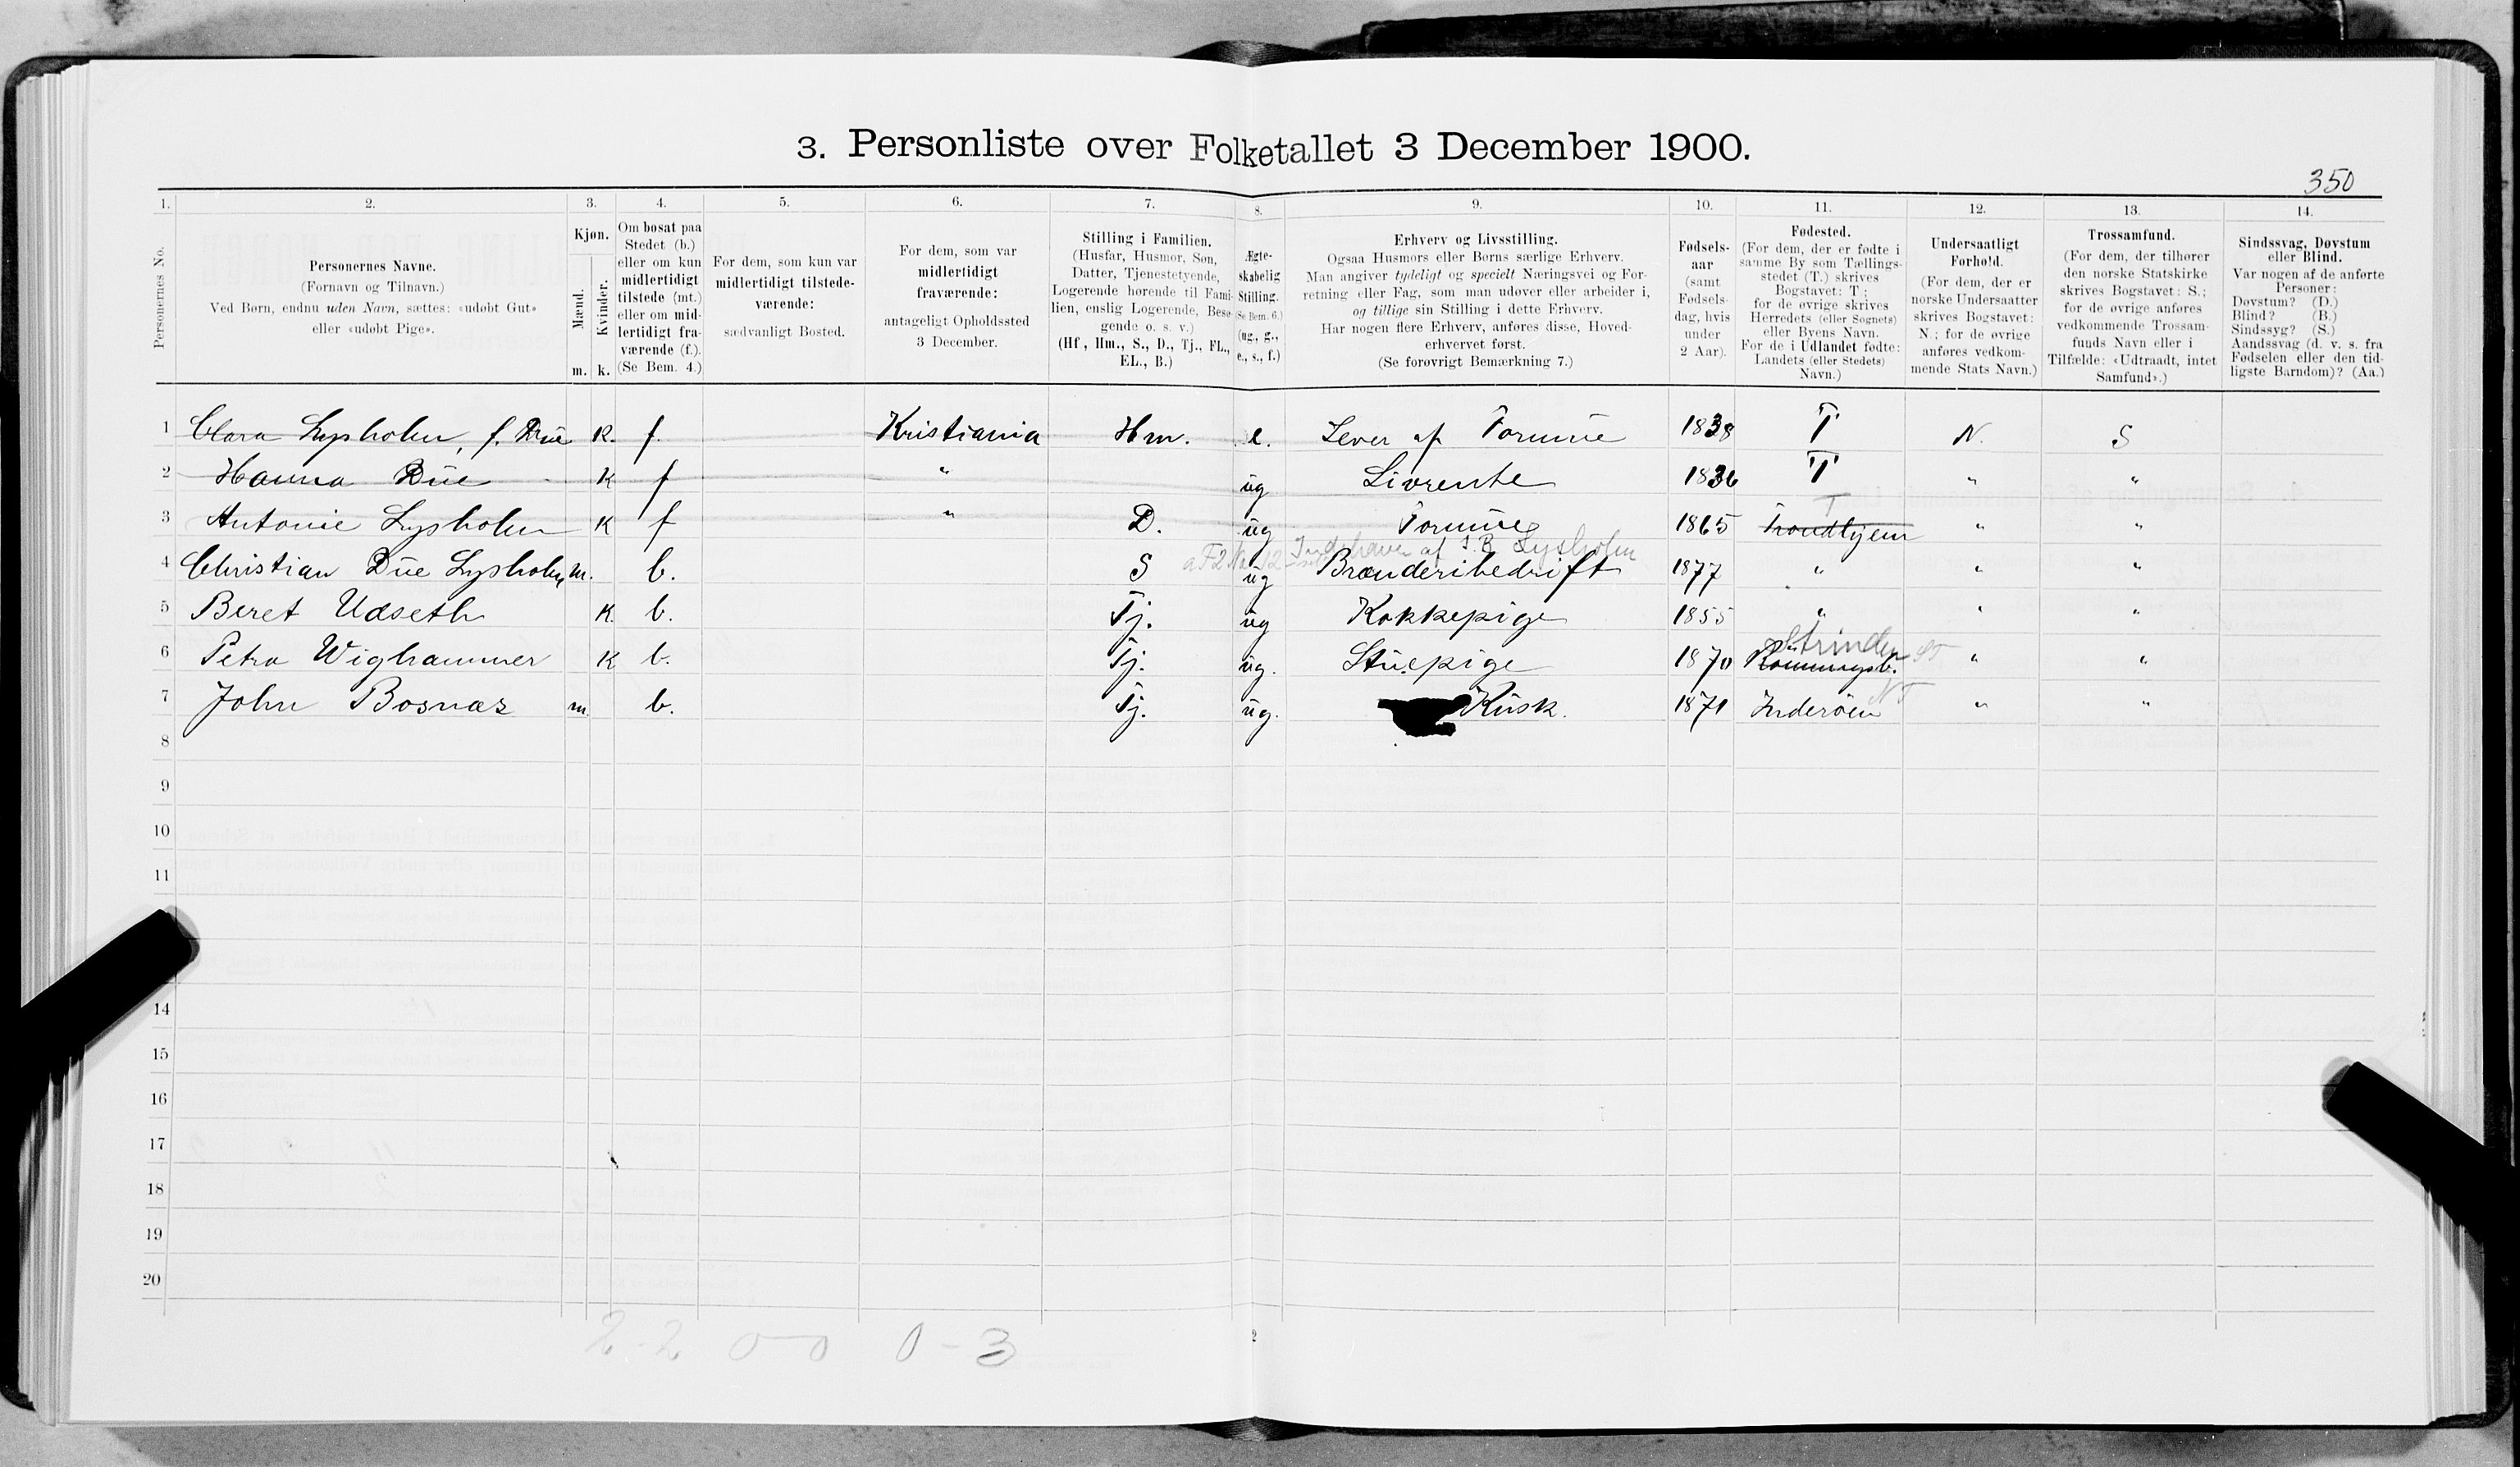 3. Personliste over Folketallet 3 December 1900.
350
1. 2. 3. 4. 5. 6. 7. 8. 9. 10. 11. 12. 13. 14.
Personernes No.
Personernes Navne.
(Fornavn og Tilnavn.)
Ved Børn, endnu uden Navn, sættes: «udøbt Gut»
eller «udøbt Pige».
Kjøn.
Mænd.
Kvinder.
m. k.
Om bosat paa
Stedet (b.)
eller om kun
midlertidigt
tilstede (mt.)
eller om mid-
lertidigt fra-
værende (f.).
(Se Bem. 4.)
For dem, som kun var
midlertidigt tilstede-
værende:
sædvanligt Bosted.
For dem, som var
midlertidigt
fraværende:
antageligt Opholdssted
3 December.
Stilling i Familien.
(Husfar, Husmor, Søn,
Datter, Tjenestetyende,
Logerende hørende til Fami-
lien, enslig Logerende, Besø-
gende o. s. v.)
(Hf, Hm., S., D., Tj., FL.,
EL., B.)
Ægte-
skabelig
Stilling.
(Se Bem. 6.)
(ug., g.,
e., s., f.)
Erhverv og Livsstilling.
Ogsaa Husmors eller Børns særlige Erhverv.
Man angiver tydeligt og specielt Næringsvei og For-
retning eller Fag, som man udøver eller arbeider i,
og tillige sin Stilling i dette Erhverv.
Har nogen flere Erhverv, anføres disse, Hoved-
erhvervet først.
(Se forøvrigt Bemærkning 7.)
Fødsels-
aar
(samt
Fødsels-
dag, hvis
under
2 Aar).
Fødested.
(For dem, der er fødte i
samme By som Tællings-
stedet (T.) skrives
Bogstavet: T;
for de øvrige skrives
Herredets (eller Sognets)
eller Byens Navn.
For de i Udlandet fødte:
Landets (eller Stedets)
Navn.)
Undersaatligt
Forhold.
(For dem, der er
norske Undersaatter
skrives Bogstavet:
N.; for de øvrige
anføres vedkom-
mende Stats Navn.)
Trossamfund.
(For dem, der tilhører
den norske Statskirke
skrives Bogstavet: S.;
for de øvrige anføres
vedkommende Trossam-
funds Navn eller i
Tilfælde: «Udtraadt, intet
Samfund».)
Sindssvag, Døvstum
eller Blind.
Var nogen af de anførte
Personer:
Døvstum? (D.)
Blind? (B.)
Sindssyg? (S.)
Aandssvag (d. v. s. fra
Fødselen eller den tid-
ligste Barndom)? (Aa.)
1 Clara Lysholm, f. Due K. f. Kristiania Hm. e. Lever af Formue 1838 T N. S
2 Hanna Due K f " ug Livrente 1836 T " "
T
3 Antonie Lysholm K f " D. ug Formue 1865 Trondhjem " "
Indehaver af J. B. Lysholm
4 Christian Due Lysholm m. b. S ug Brænderibedrift 1877 " " "
5 Beret Udseth K. b. Tj. ug Kokkepige 1855 " " "
Strinden ST
6 Petra Wighammer K b. Tj. ug. Stuepige 1870 " "
NT
7 John Bosnæs m. b. Tj. ug. Kusk. 1871 Inderøen " "
8
9
10
11
14
15
16
17
18
19
20
2-2 0-0 0-3
2